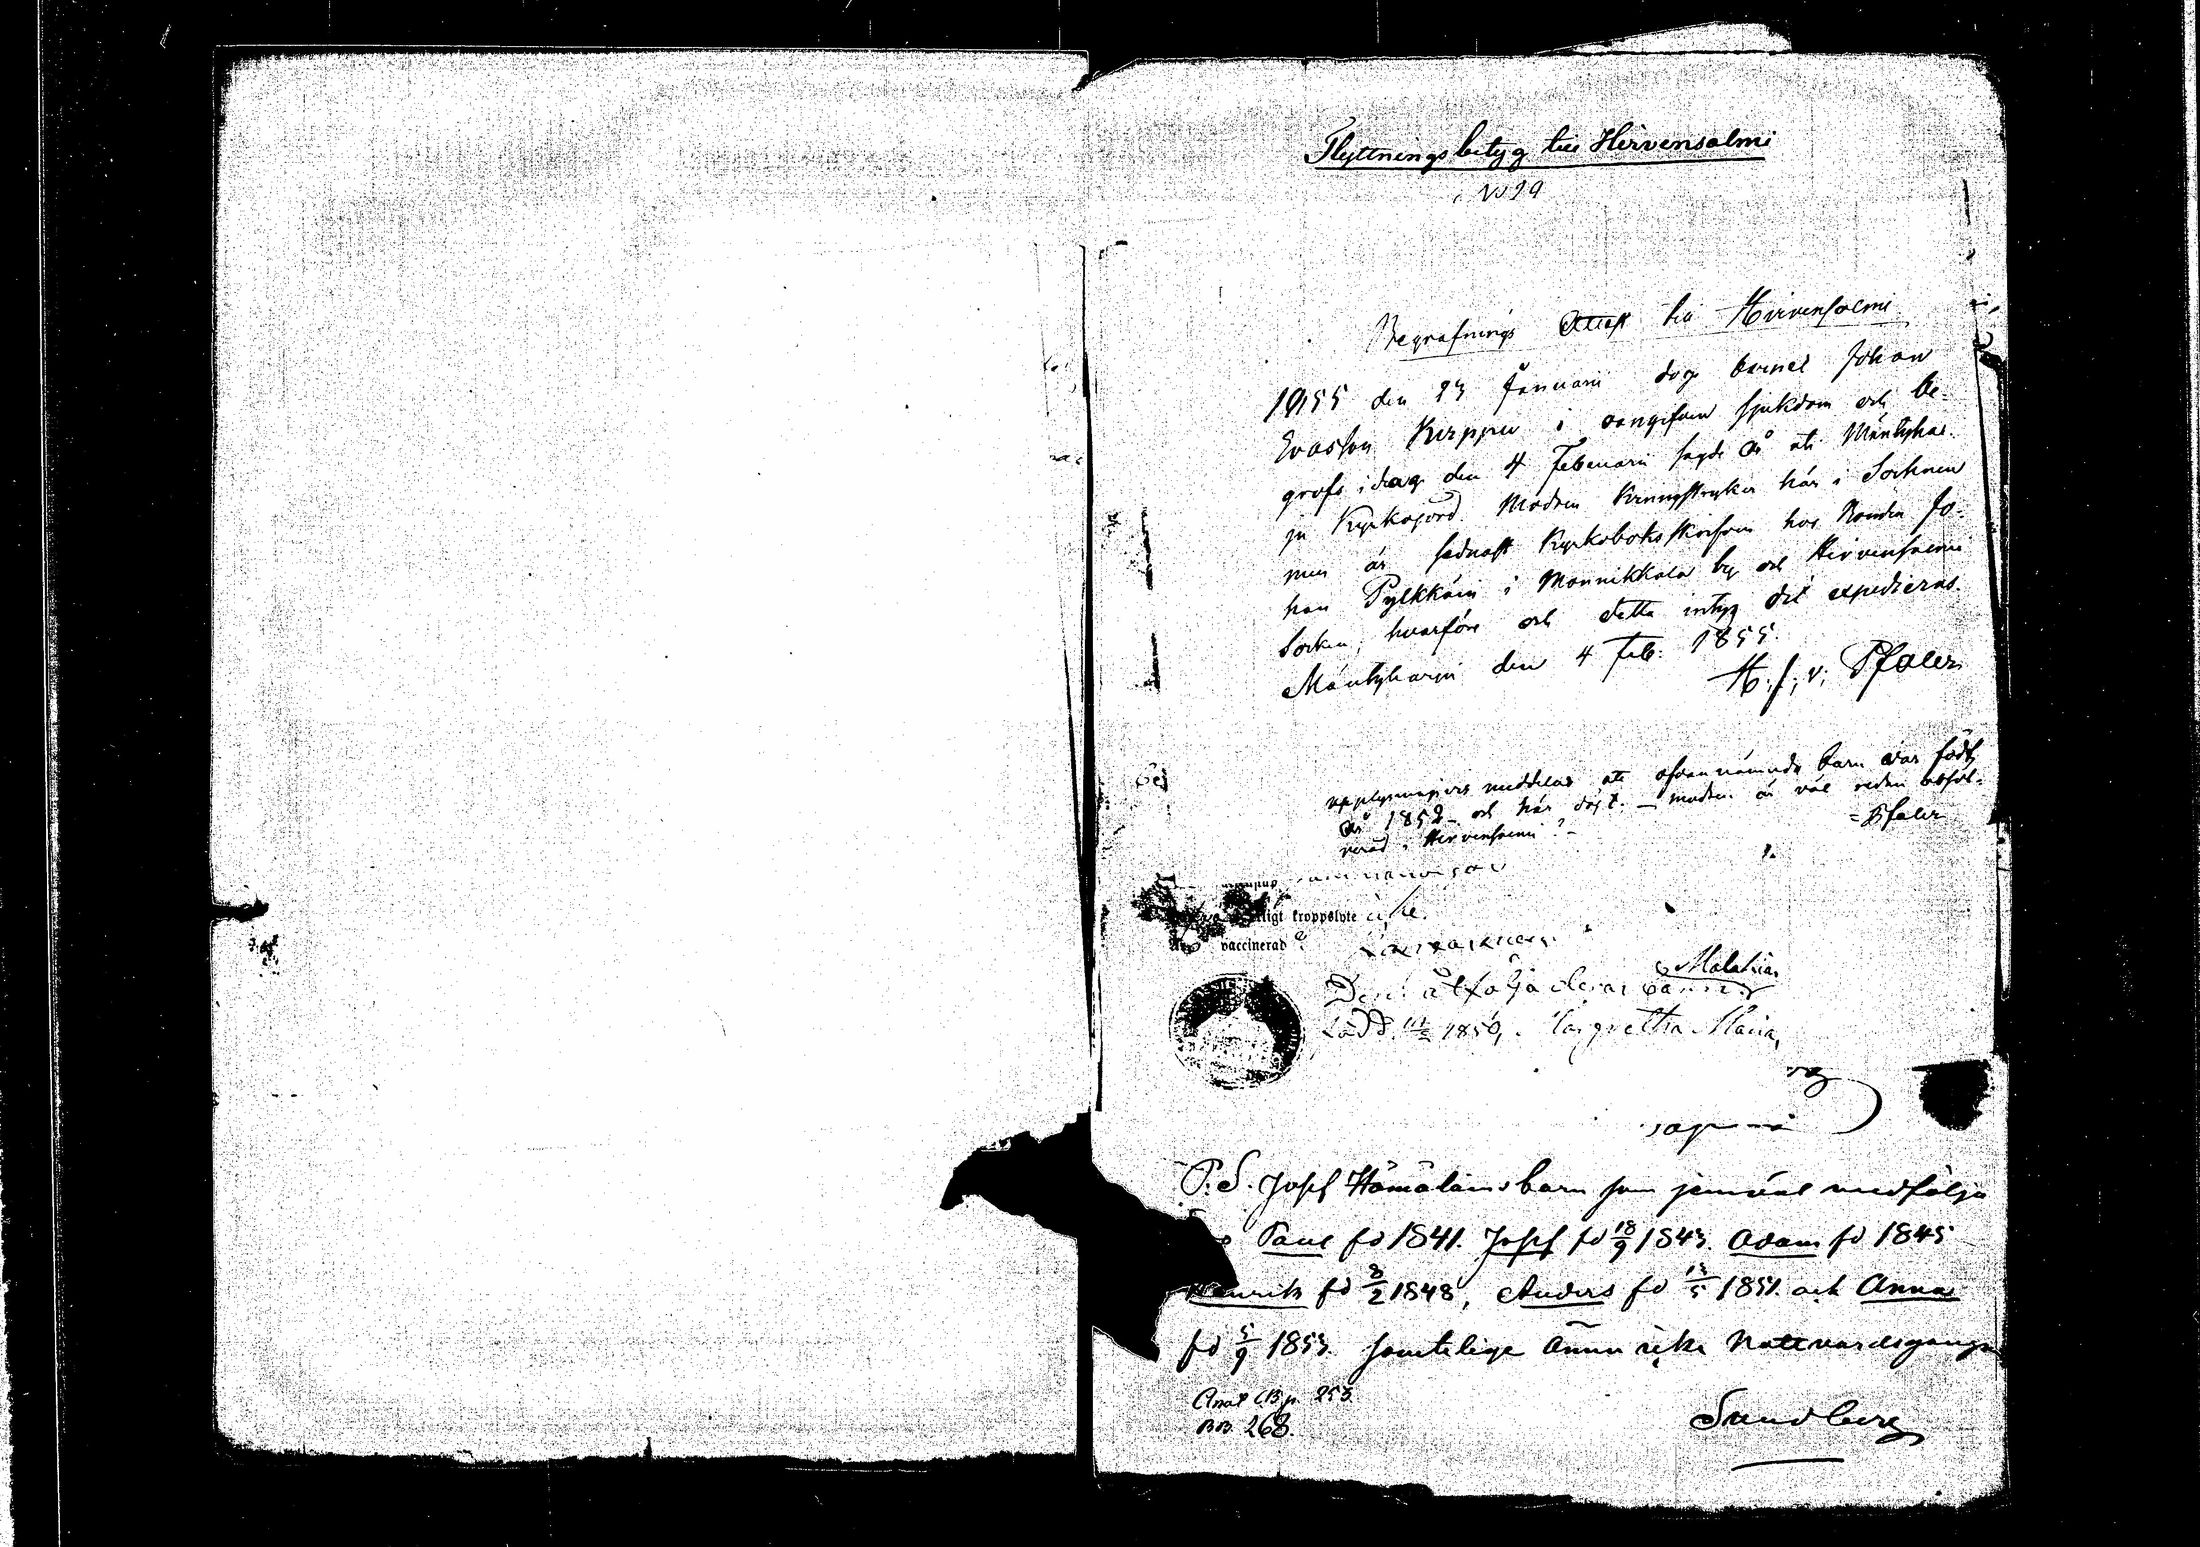 Flyttningsbetyg till Hirvensalmi
No 29
Begrafnings Attest till Hirvensalmi
1855 den 23 Januari dog barnet Johan
Evasson Kurppa i oangifven sjukdom och be-
grofs i dag den 4 Februarii sagde år uti Mäntyhar-
ju Kyrkogård. Modren kringstryker här i Socknen
men är sednast Kyrkoboksskrifven hos Bonden Jo-
han Pylkkäin i Monnikkala by och Hirvensalmi
Socken, hvarföre och detta intyg dit expedieras.
Mäntyharju den 4 Feb: 1855.
H. J. v. Pfaler
upplysningsvis meddelas att ofvannämnde Barn var född
år 1852 och här döpt. — modren är väl redan obser-
verad i Hirvensalmi? —
Pfaler
ligt kroppslyte icke.
vaccinerad
Den åtfölja deras barn Matathias
född 1850, Margretha Maria,
P.S. Josef Hämäläins barn som jemväl medfölja
Paul fd 1841. Josef fd 18/9 1843. Adam fd 1845
Henrik fd 8/2 1848, Anders fd 13/5 1851. och Anna
fd 5/9 1853. samtelige ännu icke Nattvardsgångna
CB p. 253.
BB. 268.
Sundberg